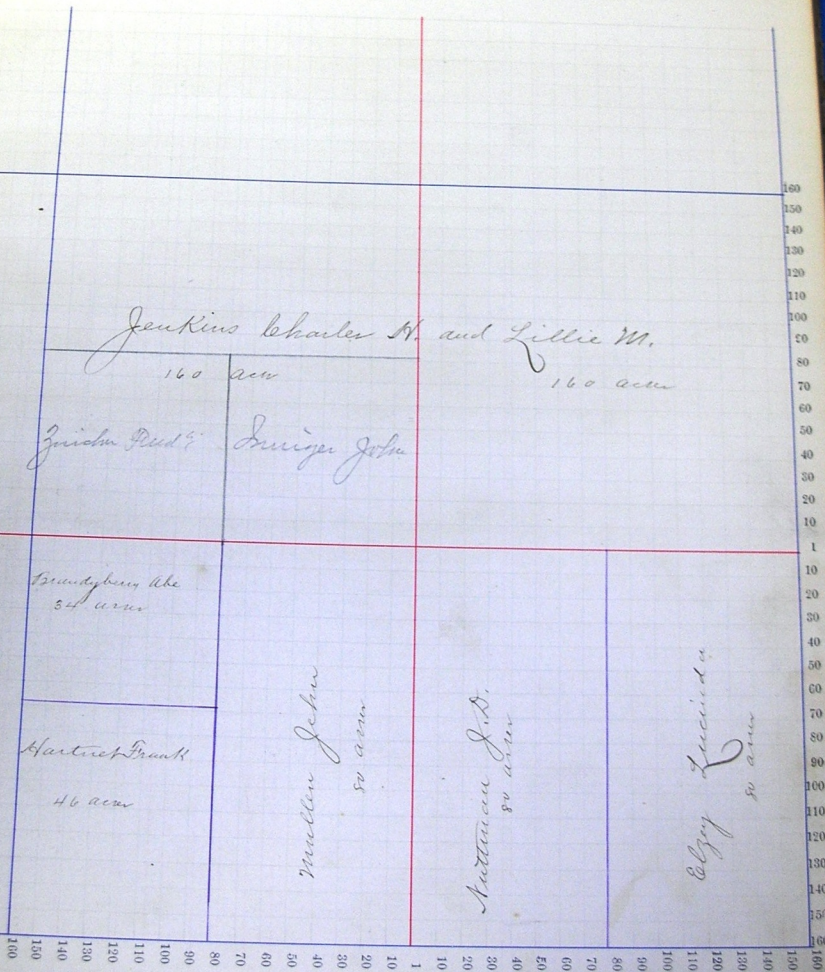 Jenkins Charles H. and Lillie M.
160 acres
160 acres
John
Brandyberry Abe
34 acres
Hartnet Frank
46 acres
Mullen John
80 acres
Nuttman J.D.
80 acres
Elzey Lucinda
80 acres
160
150
140
130
120
110
100
90
80
70
60
50
40
30
20
10
1
10
20
30
40
50
60
70
80
90
100
110
120
130
140
150
160
160 150 140 130 120 110 100 90 80 70 60 50 40 30 20 10 1 10 20 30 40 50 60 70 80 90 100 110 120 130 140 150 160